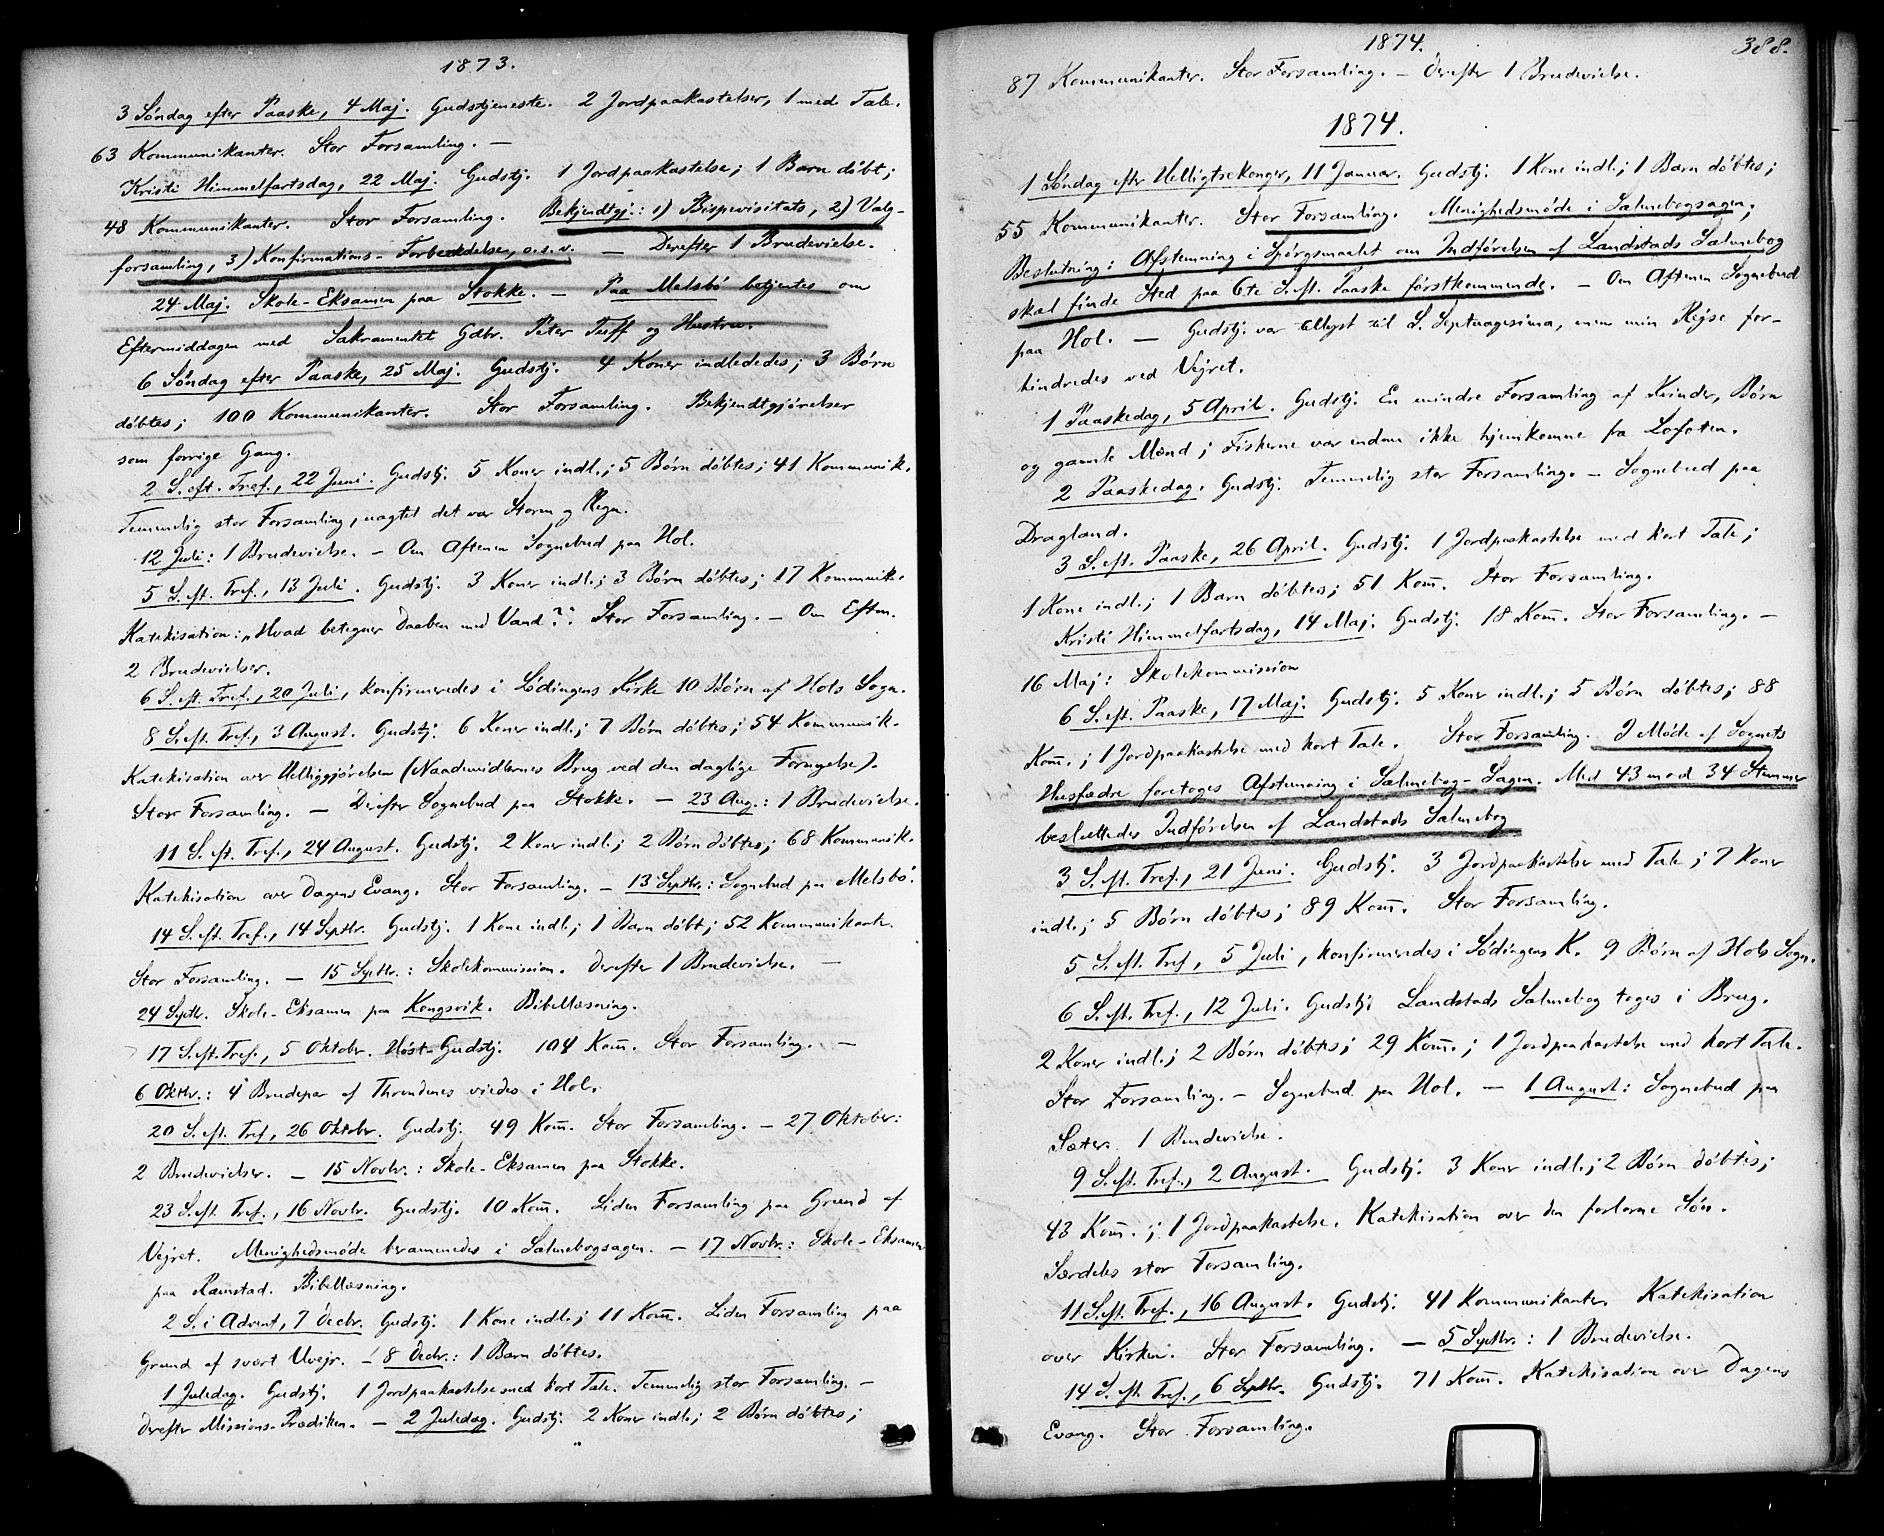 1873.
3 Søndag efter Paaske, 4 Maj. Gudstjeneste. 2 Jordpaakastelser, 1 med Tale.
63 Kommunikanter. Stor Forsamling. —
Kristi Himmelfartsdag, 22 Maj. Gudstj. 1 Jordpaakastelse; 1 Barn døbt;
48 Kommunikanter. Stor Forsamling. Bekjendtgj.: 1) Bispevisitats, 2) Valg-
forsamling, 3) Konfirmations-Forberedelse, o.s.v. — Derefter 1 Brudevielse.
24 Maj. Skole-Eksamen paa Stokke. — Paa Melsbø betjentes om
Eftermiddagen med Sakramentet Gdbr. Peter Tuff og Hustru.
6 Søndag efter Paaske, 25 Maj. Gudstj. 4 Koner indlededes; 3 Børn
døbtes; 100 Kommunikanter. Stor Forsamling. Bekjendtgjørelser
som forrige Gang.
2 S. eft. Tref., 22 Juni. Gudstj. 5 Koner indl.; 5 Børn døbtes; 41 Kommunik.
Temmelig stor Forsamling, uagtet det var Storm og Regn.
12 Juli: 1 Brudevielse. — Om Aftenen Sognebud paa Hol.
5 S. eft. Tref., 13 Juli. Gudstj. 3 Koner indl.; 3 Børn døbtes; 17 Kommunik.
Katekisation: „Hvad betegner Daaben med Vand?“ Stor Forsamling. — Om Eftm.
2 Brudevielser.
6 S. eft. Tref., 20 Juli, konfirmeredes i Lødingens Kirke 10 Børn af Hols Sogn.
8 S. eft. Tref., 3 August. Gudstj. 6 Koner indl.; 7 Børn døbtes; 54 Kommunik.
Katekisation over Helliggjørelsen (Naademidlernes Brug ved den daglige Fornyelse).
Stor Forsamling. — Derefter Sognebud paa Stokke. — 23 Aug.: 1 Brudevielse.
11 S. eft. Tref., 24 August. Gudstj. 2 Koner indl.; 2 Børn døbtes; 68 Kommunik.
Katekisation over Dagens Evang. Stor Forsamling. — 13 Septbr.: Sognebud paa Melsbø.
14 S. eft. Tref., 14 Septbr. Gudstj. 1 Kone indl.; 1 Barn døbt; 52 Kommunikant.
Stor Forsamling. — 15 Septbr.: Skolekommission. Derefter 1 Brudevielse. —
24 Septbr. Skole-Eksamen paa Kongsvik. Bibellæsning.
17 S. eft. Tref., 5 Oktobr. Høst-Gudstj. 104 Kom̅. Stor Forsamling. —
6 Oktbr.: 4 Brudepar af Throndenes viedes i Hol.
20 S. eft. Tref., 26 Oktobr. Gudstj. 49 Kom̅. Stor Forsamling. — 27 Oktober:
2 Brudevielser. — 15 Novbr.: Skole-Eksamen paa Stokke.
23 S. eft. Tref., 16 Novbr. Gudstj. 10 Kom̅. Liden Forsamling paa Grund af
Vejret. Menighedsmøde berammedes i Salmebogsagen. — 17 Novbr.: Skole-Eksamen
paa Ramstad. Bibellæsning.
2 S. i Advent, 7 Decbr. Gudstj. 1 Kone indl.; 11 Kom̅. Liden Forsamling paa
Grund af svært Uvejr. — 8 Decbr.: 1 Barn døbtes.
1 Juledag. Gudstj. 1 Jordpaakastelse med kort Tale. Temmelig stor Forsamling. —
Derefter Missions-Prædiken. — 2 Juledag. Gudstj. 2 Koner indl.; 2 Børn døbtes;
1874. 388.
87 Kommunikanter. Stor Forsamling. — Derefter 1 Brudevielse.
1874.
1 Søndag efter Helligtrekonger, 11 Januar. Gudstj. 1 Kone indl.; 1 Barn døbtes;
55 Kommunikanter. Stor Forsamling. Menighedsmøde i Salmebogsagen;
Beslutning: Afstemning i Spørgsmaalet om Indførelsen af Landstads Salmebog
skal finde Sted paa 6te S. eft. Paaske førstkommende. — Om Aftenen Sognebud
paa Hol. — Gudstj. var tillyst til S. Septuagesima, men min Rejse for-
hindredes ved Vejret.
1 Paaskedag, 5 April. Gudstj. En mindre Forsamling af Kvinder, Børn
og gamle Mænd; Fiskerne var endnu ikke hjemkomne fra Lofoten.
2 Paaskedag. Gudstj. Temmelig stor Forsamling. — Sognebud paa
Dragland.
3 S. eft. Paaske, 26 April. Gudstj. 1 Jordpaakastelse med kort Tale;
1 Kone indl.; 1 Barn døbtes; 51 Kom̅. Stor Forsamling.
Kristi Himmelfartsdag, 14 Maj. Gudstj. 18 Kom̅. Stor Forsamling. —
16 Maj: Skolekommission
6 S. eft. Paaske, 17 Maj. Gudstj. 5 Koner indl.; 5 Børn døbtes; 88
Kom̅.; 1 Jordpaakastelse med kort Tale. Stor Forsamling. I Møde af Sognets
Husfædre foretoges Afstemning i Salmebog-Sagen. Med 43 mod 34 Stemmer
besluttedes Indførelsen af Landstads Salmebog.
3 S. eft. Tref., 21 Juni. Gudstj. 3 Jordpaakastelser med Tale; 7 Koner
indl.; 5 Børn døbtes; 89 Kom̅. Stor Forsamling.
5 S. eft. Tref., 5 Juli, konfirmeredes i Lødingens K. 9 Børn af Hols Sogn.
6 S. eft. Tref., 12 Juli. Gudstj. Landstads Salmebog toges i Brug.
2 Koner indl.; 2 Børn døbtes; 29 Kom̅.; 1 Jordpaakastelse med kort Tale.
Stor Forsamling. — Sognebud paa Hol. — 1 August: Sognebud paa
Sæter. 1 Brudevielse.
9 S. eft. Tref., 2 August. Gudstj. 3 Koner indl.; 2 Børn døbtes;
43 Kom̅.; 1 Jordpaakastelse. Katekisation over den forlorne Søn.
Særdeles stor Forsamling.
11 S. eft. Tref., 16 August. Gudstj. 41 Kommunikanter. Katekisation
over Kirken. Stor Forsamling. — 5 Septbr.: 1 Brudevielse.
14 S. eft. Tref., 6 Septbr. Gudstj. 71 Kom̅. Katekisation over Dagens
Evang. Stor Forsamling.